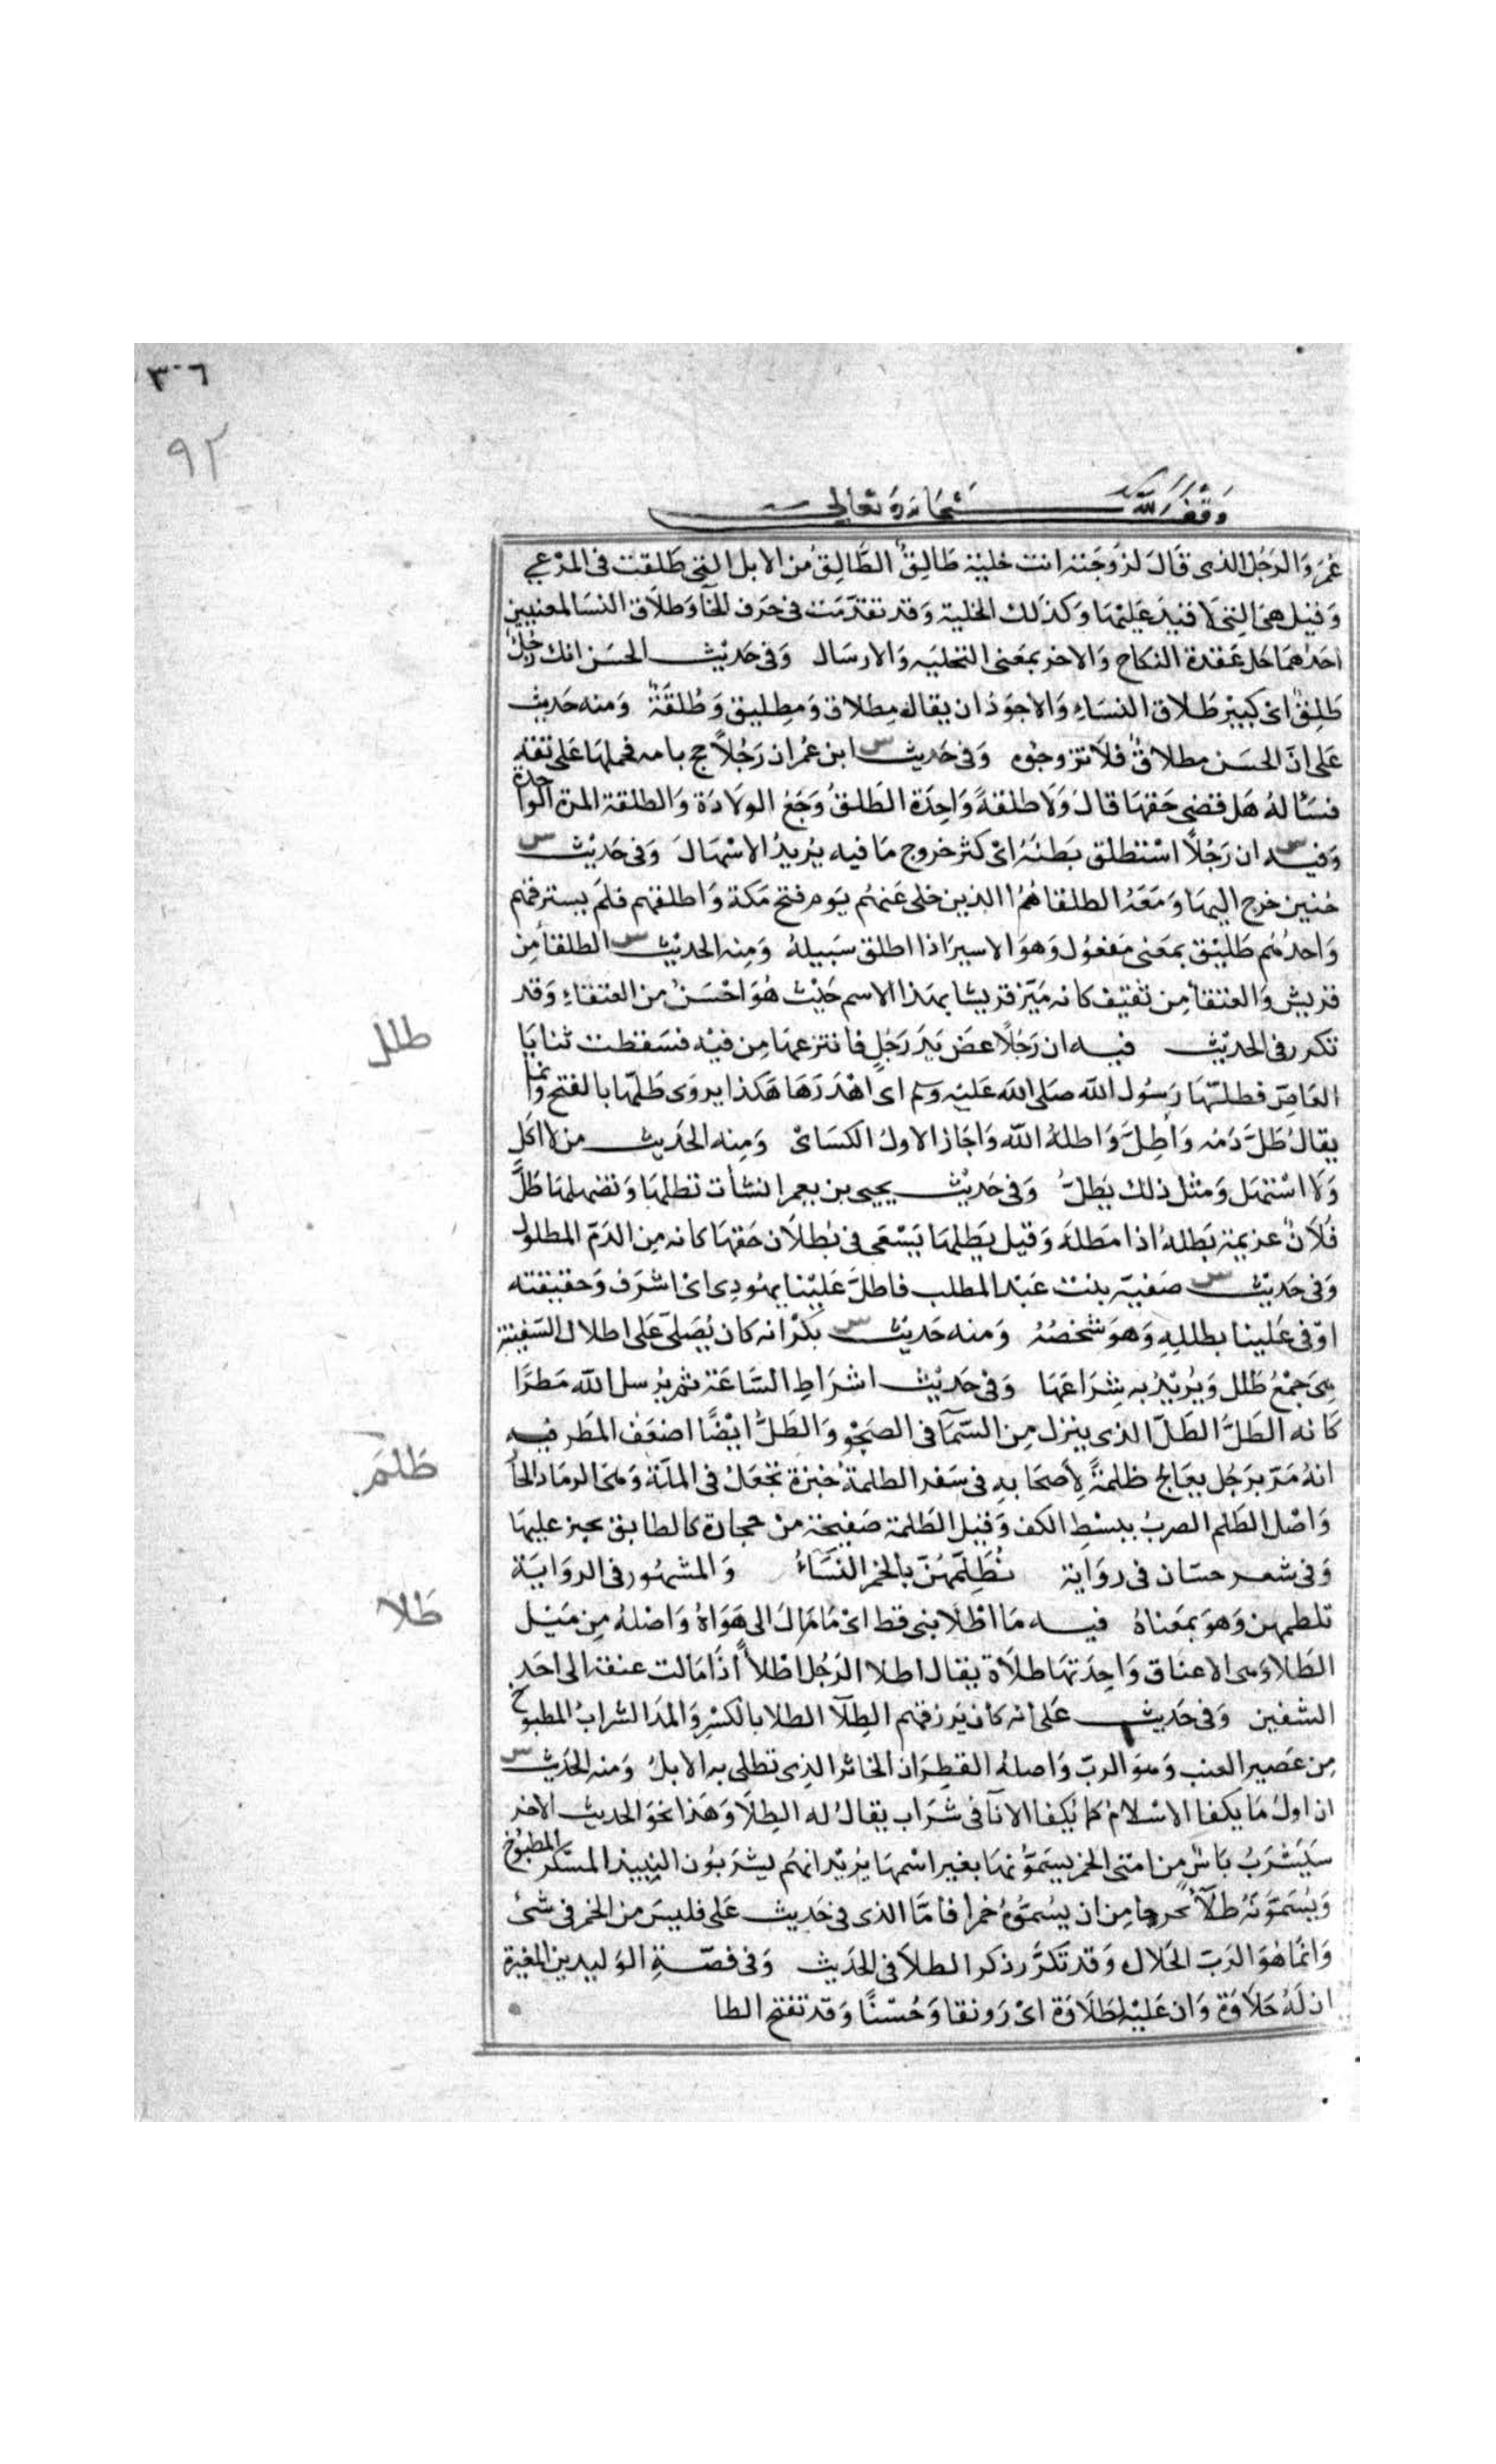 ٣٠٦
٩٢
وقف لله سبحانه وتعالى
عمر والرجل الذى قال لزوجته انت خلية طالق الطالق من الابل التى طلقت فى المرعى
وقيل هى التى لا قيد عليها وكذلك الخلية وقد تقدمت فى حرف الخا وطلاق النسا لمعنيين
احدهما حل عقدة النكاح والاخر بمعنى التخلية والارسال وفى حديث الحسن انك رجل
طلق اى كبير طلاق النساء والاجود ان يقال مطلاق ومطليق وطلقة ومنه حديث
على ان الحسن مطلاق فلا تزوجوه وفى حديث س ابن عمر ان رجلا حج بامه فحملها على عاتقه
فسأله هل قضى حقها قال ولا طلقة واحدة الطلق وجع الولادة والطلقة المرة الواحدة
وفيه س ان رجلا استطلق بطنه اى كثر خروج ما فيه يريد الاسهال وفى حديث س
حنين خرج اليها ومعه الطلقا هم الذين خلى عنهم يوم فتح مكة واطلقهم فلم يسترقهم
واحدهم طليق بمعنى مفعول وهو الاسير اذا اطلق سبيله ومنه الحديث س الطلقا من
قريش والعتقا من ثقيف كانه ميز قريشا بهذا الاسم حيث هو احسن من العتقاء وقد
تكرر فى الحديث فيه ان رجلا عض يد رجل فانتزعها من فيه فسقطت ثنايا
طلل
العاض فطلها رسول الله صلى الله عليه وسلم اى اهدرها هكذا يروى طلها بالفتح وانما
يقال طل دمه واطل واطله الله واجاز الاول الكساى ومنه الحديث من لا اكل
ولا استهل ومثل ذلك يطل وفى حديث يحيى بن يعمر انشأت تطلها وتضهلها طل
فلان غريمه يطله اذا مطله وقيل يطلها يسعى فى بطلان حقها كانه من الدم المطلول
وفى حديث س صفية بنت عبد المطلب فاطل علينا يهودى اى اشرف وحقيقته
اوفى علينا بطلله وهو شخصه ومنه حديث س بكر انه كان يصلى على اطلال السفينة
هى جمع طلل ويريد به شراعها وفى حديث اشراط الساعة ثم يرسل الله مطرا
كانه الطل الطل الذى ينزل من السما فى الصحو والطل ايضا اضعف المطر فيه
طلم
انه مر برجل يعالج طلمة لأصحابه فى سفر الطلمة خبزة تجعل فى الملة وهى الرماد الحا
واصل الطلم الضرب ببسط الكف وقيل الطلمة صفيحة من حجارة كالطابق يخبز عليها
وفى شعر حسان فى رواية تطلمهن بالخمر النساء والمشهور فى الرواية
تلطمهن وهو بمعناه فيه ما اطلا بنى قط اى ما مال الى هواه واصله من ميل
طلا
الطلاء وهى الاعناق واحدتها طلاة يقال اطلا الرجل اطلاأ اذا مالت عنقه الى احد
الشقين وفى حديث على انه كان يرزقهم الطلا الطلا بالكسر والمد الشراب المطبوخ
من عصير العنب وهو الرب واصله القطران الخاثر الذى تطلى به الابل ومنه الحديث س
ان اول ما يكفا الاسلام كما يكفا الانا فى شراب يقال له الطلا وهذا نحو الحديث الاخر
سيشرب ناس من امتى الخمر يسمونها بغير اسمها يريد انهم يشربون النبيذ المسكر المطبوخ
ويسمونه طلاء تحرجا من ان يسموه خمرا فأما الذى فى حديث على فليس من الخمر فى شئ
وانما هو الرب الحلال وقد تكرر ذكر الطلا فى الحديث وفى قصة الوليد بن المغيرة
ان له حلاوة وان عليه لطلاوة اى رونقا وحسنا وقد تفتح الطا